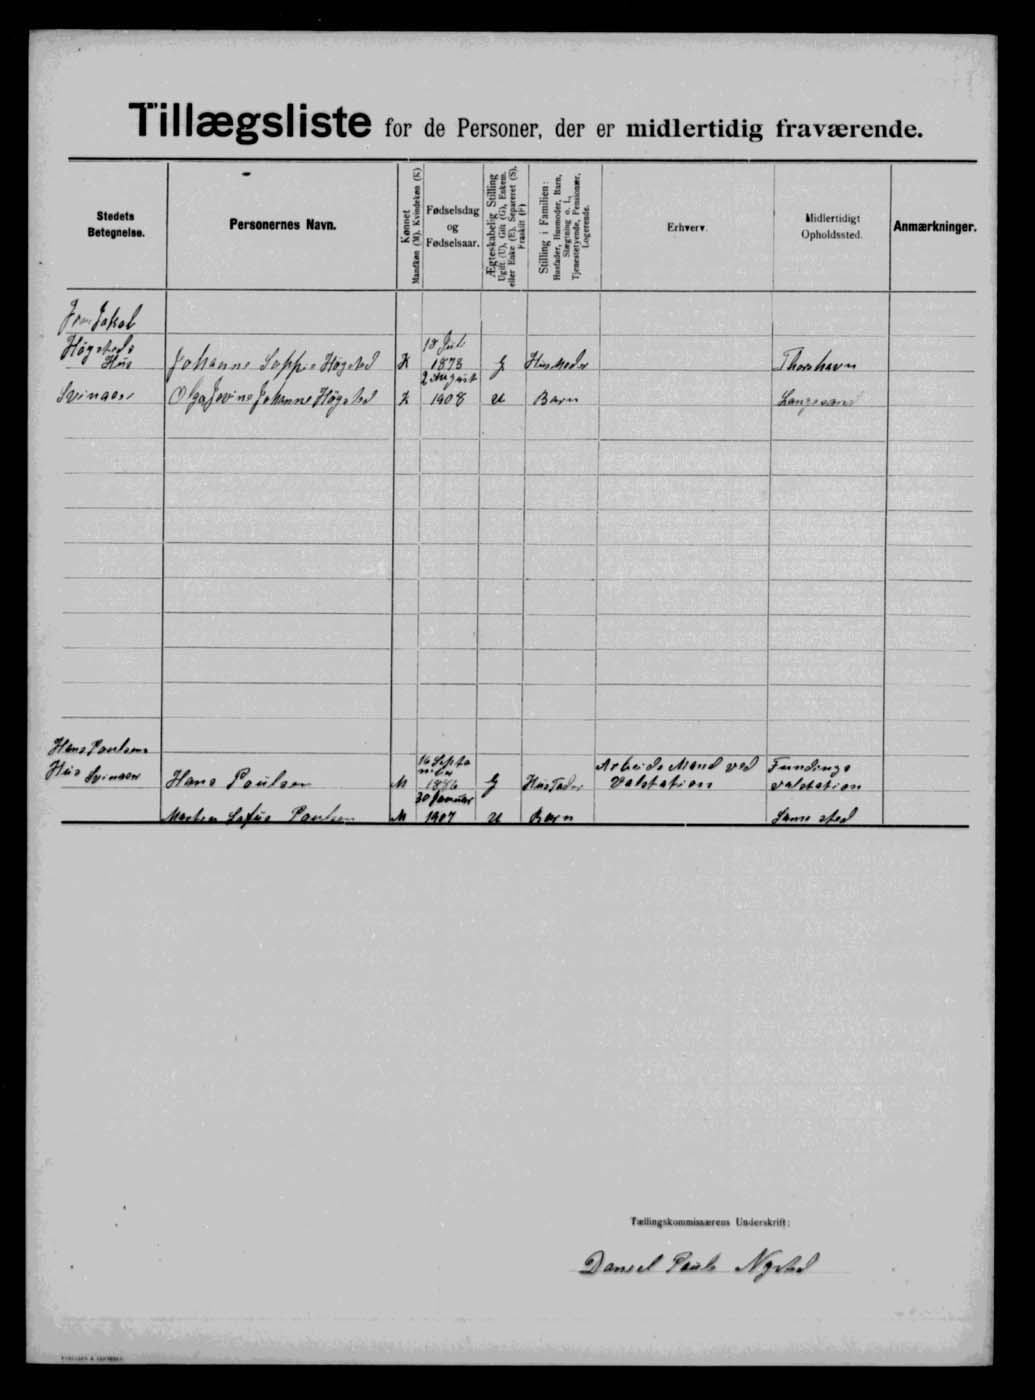 Tillægsliste for de Personer, der er midlertidig fraværende.
Stedets Betegnelse.
Personernes Navn.
Kønnet
Mandkøn (M), Kvindekøn (K)
Fødselsdag
og
Fødselsaar.
Ægteskabelig Stilling
Ugift (U), Gift (G), Enkem.
eller Enke (E), Separeret (S),
Fraskilt (F)
Stilling i Familien:
Husfader, Husmoder, Barn,
Slægtning o. l.,
Tjenestetyende, Pensionær,
Logerende.
Erhverv.
Midlertidigt
Opholdssted.
Anmærkninger.
Jakob
Høgsteds
Hus Johanne Soppie Høgsted K 18 Juli 1873 G Hus Moder Thorshavn
Svinaær Olga Jovine Johanne Høgsted K 2 August 1908 U Barn Langesand
Hans Poulsens
Hus Svinaær Hans Poulsen M 16 Septemb 1886 G Hus Fader Arbeids Mand ved Valstation Fundings valstation
Morten Sofus Poulsen M 30 Januar 1907 U Barn Samme sted
Tællingskommissærens Underskrift:
Daniel Pauli Nysted